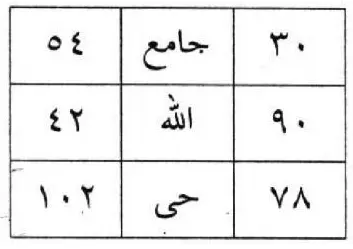 ٣٠ جامع ٥٤
٩٠ الله ٤٢
٧٨ حى ١٠٢